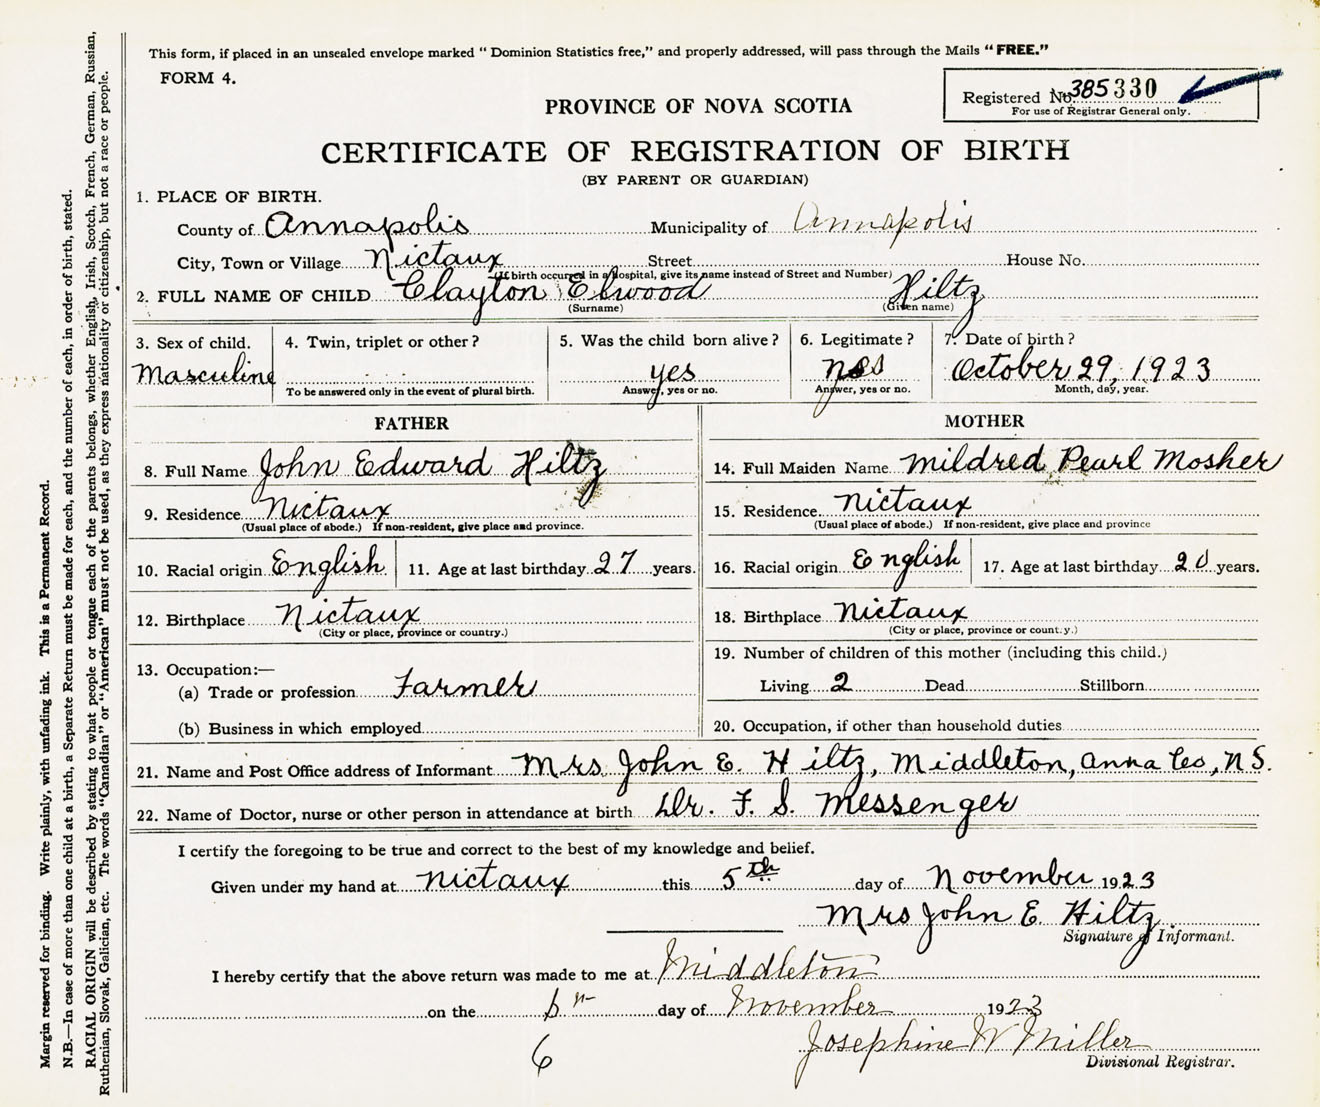 This form, if placed in an unsealed envelope marked “ Dominion Statistics free,” and properly addressed, will pass through the Mails “FREE.”
FORM 4.
Registered No. 385330
For use of Registrar General only.
PROVINCE OF NOVA SCOTIA
CERTIFICATE OF REGISTRATION OF BIRTH
(BY PARENT OR GUARDIAN)
1. PLACE OF BIRTH.
County of Annapolis Municipality of Annapolis
City, Town or Village Nictaux Street House No.
(If birth occurred in a Hospital, give its name instead of Street and Number)
2. FULL NAME OF CHILD Clayton Elwood Hiltz
(Surname) (Given name)
3. Sex of child. 4. Twin, triplet or other? 5. Was the child born alive? 6. Legitimate? 7. Date of birth?
Masculine yes October 29, 1923
To be answered only in the event of plural birth. Answer, yes or no. Answer, yes or no. Month, day, year.
FATHER
8. Full Name John Edward Hiltz
9. Residence Nictaux
(Usual place of abode.) If non-resident, give place and province.
10. Racial origin English 11. Age at last birthday 27 years.
12. Birthplace Nictaux
(City or place, province or country.)
13. Occupation:—
(a) Trade or profession Farmer
(b) Business in which employed
MOTHER
14. Full Maiden Name Mildred Pearl Mosher
15. Residence. Nictaux
(Usual place of abode.) If non-resident, give place and province
16. Racial origin English 17. Age at last birthday 20 years.
18. Birthplace Nictaux
(City or place, province or country.)
19. Number of children of this mother (including this child.)
Living 2 Dead Stillborn
20. Occupation, if other than household duties
21. Name and Post Office address of Informant Mrs John E. Hiltz, Middleton, Anna Co, N S.
22. Name of Doctor, nurse or other person in attendance at birth Dr. F. S. Messenger
I certify the foregoing to be true and correct to the best of my knowledge and belief.
Given under my hand at Nictaux this 5th day of November 1923
Mrs John E. Hiltz
Signature of Informant.
I hereby certify that the above return was made to me at Middleton
on the day of November 1923
6
Josephine W Miller
Divisional Registrar.
Margin reserved for binding. Write plainly, with unfading ink. This is a Permanent Record.
N.B.—In case of more than one child at a birth, a Separate Return must be made for each, and the number of each, in order of birth, stated.
RACIAL ORIGIN will be described by stating to what people or tongue each of the parents belongs, whether English, Irish, Scotch, French, German, Russian,
Ruthenian, Slovak, Galician, etc. The words “Canadian” or “American” must not be used, as they express nationality or citizenship, but not a race or people.